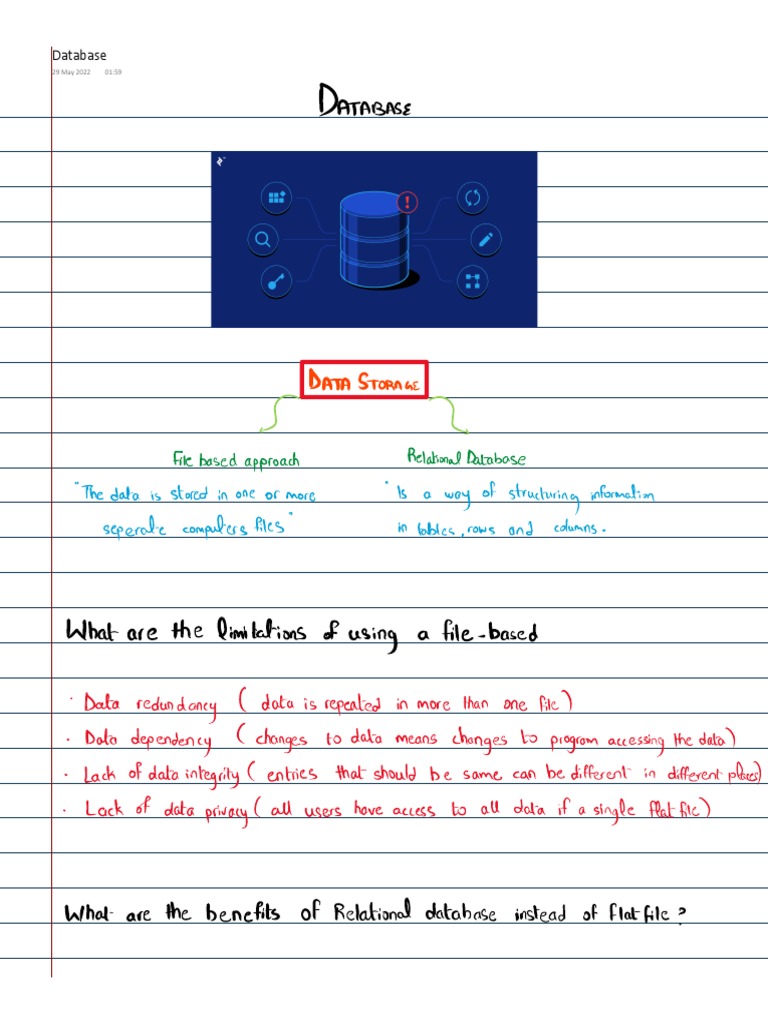 Database
29 May 2022 01:59
DATABASE
DATA STORAGE
File based approach
Relational Database
"The data is stored in one or more
seperate computers files"
"Is a way of structuring information
in tables, rows and columns.
What are the limitations of using a file-based
· Data redundancy ( data is repeated in more than one file)
· Data dependency ( changes to data means changes to program accessing the data)
· Lack of data integrity ( entries that should be same can be different in different places)
· Lack of data privacy ( all users have access to all data if a single flat file)
What are the benefits of Relational database instead of flat file?